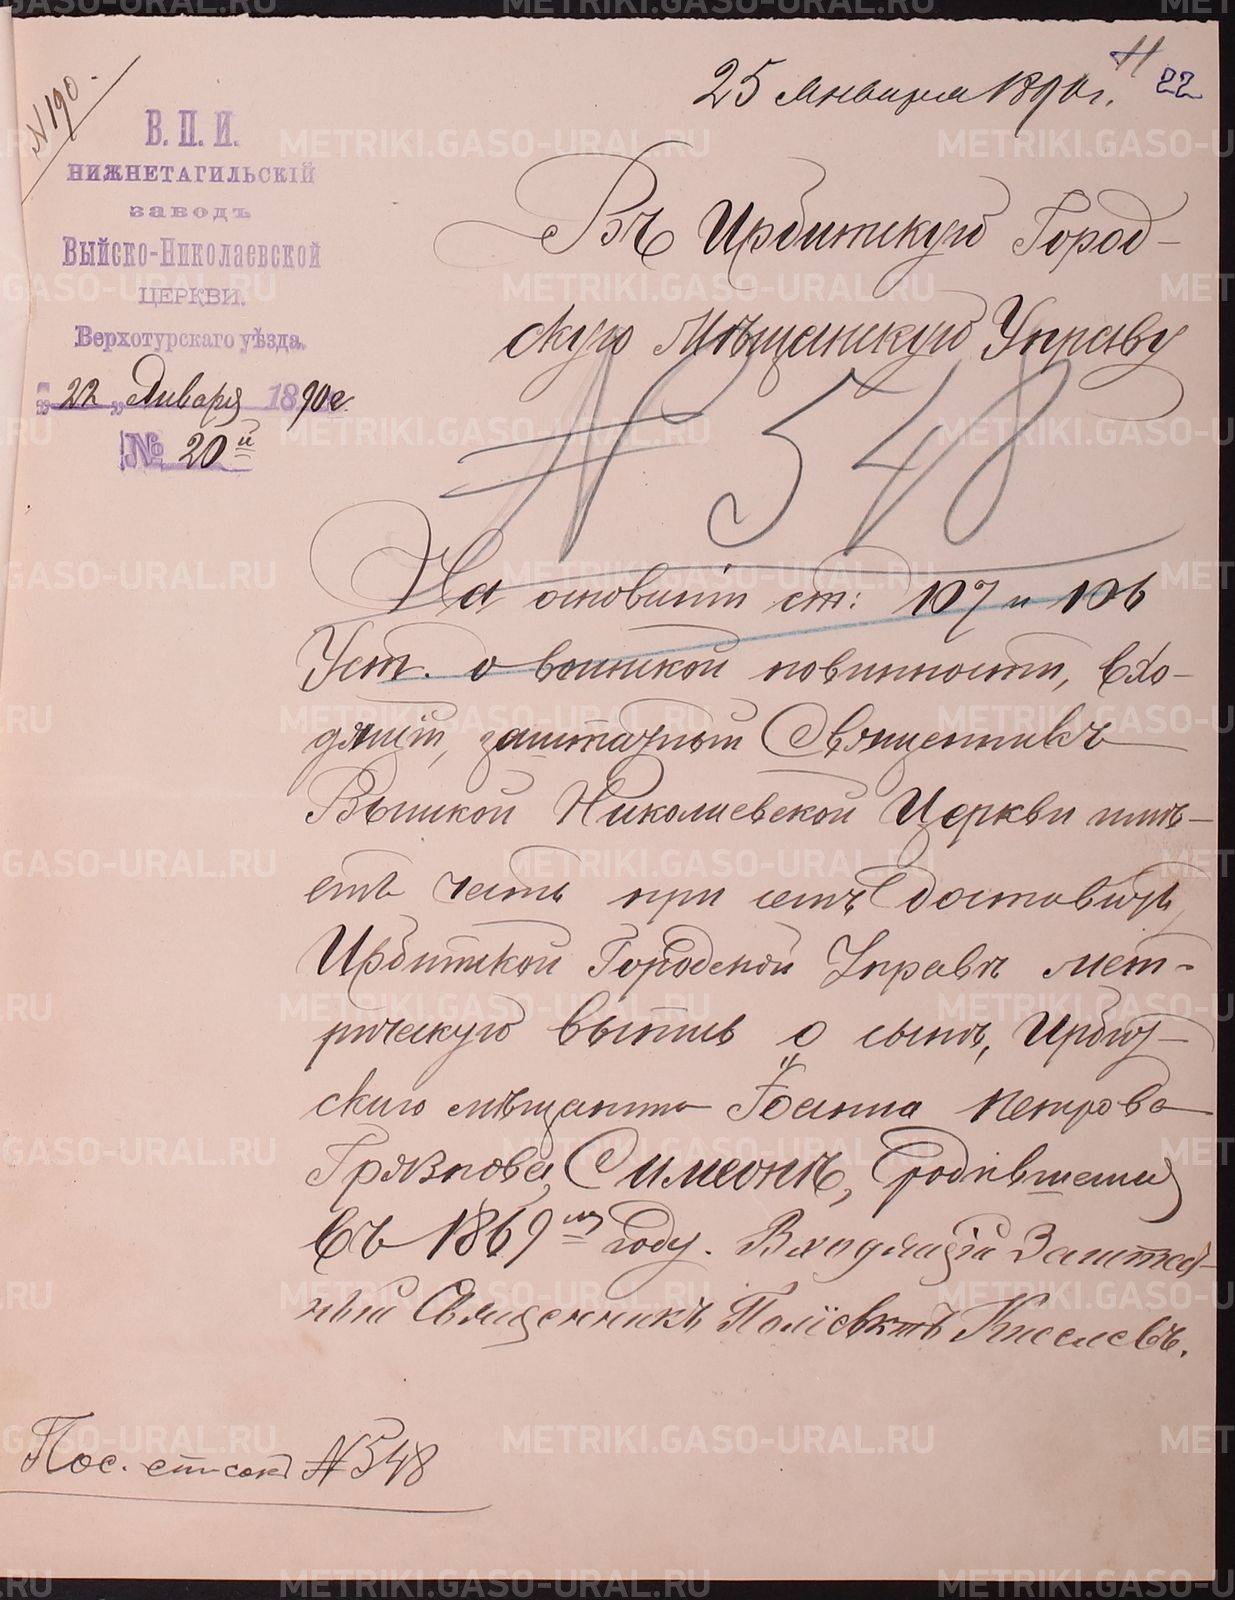 25 января 1890 г.
11
22
N 190.
В. П. И.
НИЖНЕТАГИЛЬСКІЙ
ЗАВОДЪ
ВЫЙСКО-НИКОЛАЕВСКОЙ
ЦЕРКВИ.
Верхотурскаго уѣзда.
„22„ Января 1890 г.
№ 20й
Въ Ирбитскую Город-
скую Мѣщанскую Управу
N 548
На основаніи ст: 107 и 106
Уст. о воинской повинности, вхо-
дящій, заштатный Священникъ
Выйской Николаевской Церкви имѣ-
етъ честь при семъ доставить
Ирбитской Городской Управѣ мет-
рическую выпись о сынѣ, Ирбит-
скаго мѣщанина Іоанна Петрова
Грязнова, Симеонѣ, родившемся
въ 1869м году. Входящій Заштат-
ный Священникъ Поліевктъ Киселевъ.
Пос. списокъ N 548
METRIKI.GASO-URAL.RU